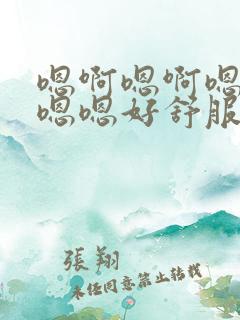 嗯啊嗯啊嗯
嗯嗯好舒服
張翔
未経同意禁止转载